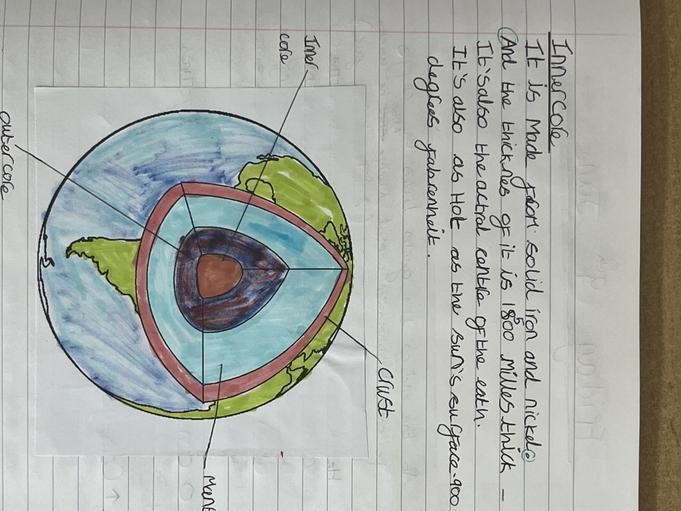 Inner core
It is Made from solid iron and nickel
And the thicknes of it is 1500 Milles thick
It's also the actral centre of the eath.
It's also as Hot as the sun's surface.900
degrees fahrenheit.
Inner
core
outer core
crust
Mant